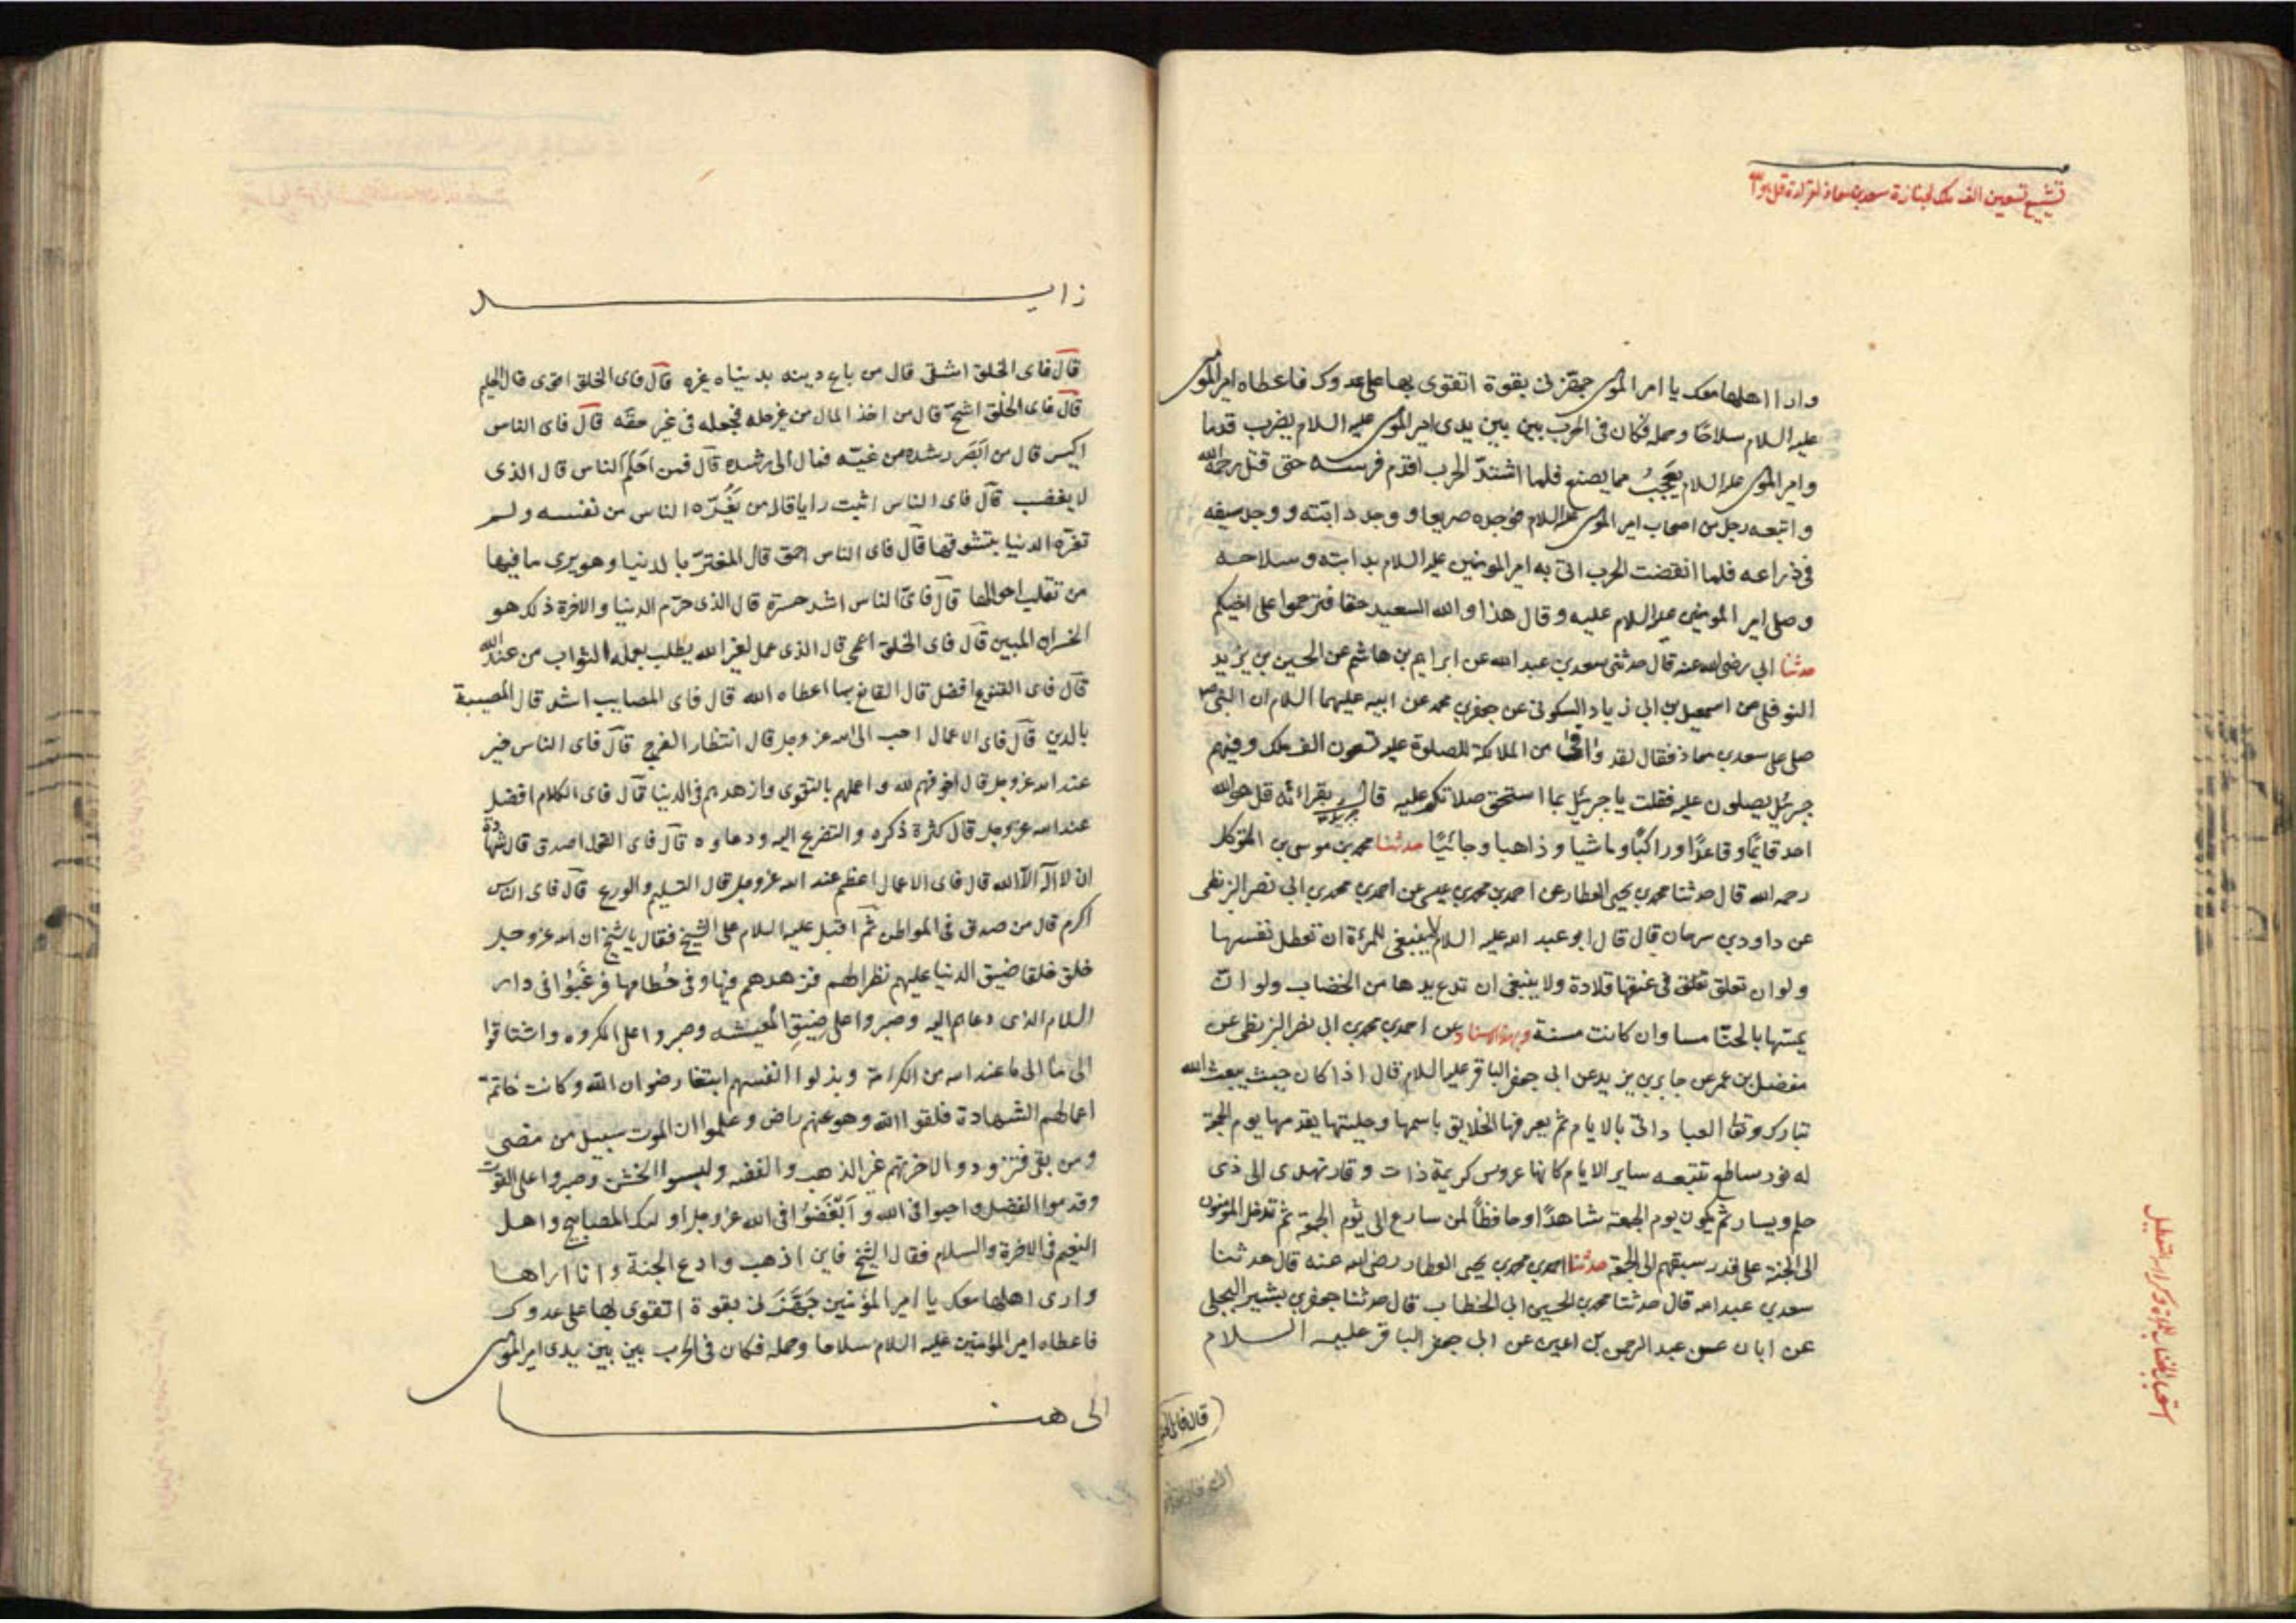 في تشييع تسعين الف ملك لجنازة سعد بن معاذ لقراءة قل هو الله
وارا اهلها معك يا امير المومنين جهزني بقوة اتقوى بها على عدوك فاعطاه امير المومنين
عليه السلام سلاحًا وحمله فكان في الحرب بين بين يدى امير المومنين عليه السلام يضرب قدما
وامير المومنين عليه السلام يعجبُ مما يصنع فلما اشتدّ الحرب اقدم فرسه حتى قتل رحمه الله
واتبعه رجل من اصحاب امير المومنين عليه السلام فوجده صريعا ووجد دابته ووجد سيفه
في ذراعه فلما انقضت الحرب اتى به امير المومنين عليه السلام بدابته وسلاحه
وصلى امير المومنين عليه السلام عليه وقال هذا والله السعيد حقا فترحموا على اخيكم
حدثنا ابي رضي الله عنه قال حدثنى سعد بن عبد الله عن ابراهيم بن هاشم عن الحسين بن يزيد
النوفلي عن اسمعيل بن ابي زياد السكونى عن جعفر بن محمد عن ابيه عليهما السلام ان النبي ص
صلى على سعد بن معاذ فقال لقد وافى من الملائكة للصلوة عليه تسعون الف ملك وفيهم
جبرئيل يصلون عليه فقلت يا جبرئيل بما استحق صلاتكم عليه قال بقراءته قل هو الله
احد قايمًا وقاعدًا وراكبًا وماشيا وذاهبا وجائيًا حدثنا محمد بن موسى بن المتوكل
رحمه الله قال حدثنا محمد بن يحيى العطار عن احمد بن محمد بن عيسى عن احمد بن محمد بن ابى نصر البزنطى
عن داود بن سرحان قال قال ابو عبد الله عليه السلام لا ينبغي للمرءة ان تعطل نفسها
ولو ان تعلق تعلق في عنقها قلادة ولا ينبغى ان تدع يدها من الخضاب ولو ان
يمسها بالحنا مسا وان كانت مسنة وبهذا الاسناد عن احمد بن محمد بن ابى نصر البزنطى عن
مفضل بن عمر عن جابر بن يزيد عن ابى جعفر الباقر عليه السلام قال اذا كان حيث يبعث الله
تبارك وتعا العباد اتى بالايام ثم يعرفها الخلايق باسمها وحليتها يقدمها يوم الجمعة
له نور ساطع تتبعه ساير الايام كانها عروس كريمة ذات وقار تهدى الى ذى
حلم ويسار ثم يكون يوم الجمعة شاهدًا وحافظًا لمن سارع الى يوم الجمعة ثم تدخل المؤمنون
الى الجنة على قدر سبقهم الى الجمعة حدثنا احمد بن محمد بن يحيى العطار رضي الله عنه قال حدثنا
سعد بن عبد الله قال حدثنا محمد بن الحسين ابى الخطاب قال حدثنا جعفر بن بشير البجلى
عن ابان عن عبد الرحمن بن اعين عن ابى جعفر الباقر عليه السلام
استحباب الخضاب للمراة وكراهية التعطيل
زايد
قال فاى الخلق اشقى قال من باع دينه بدنياه غيره قال فاى الخلق اقوى قال الحليم
قال فاى الخلق اشحّ قال من اخذ المال من غير حله فجعله في غير حقّه قال فاى الناس
اكيس قال من ابصر رشده من غيّه فمال الى رشده قال فمن احلم الناس قال الذى
لا يغضب قال فاى الناس اثبت رايا قال من يغرّه الناس من نفسه ولم
تغرّه الدنيا بتشوقها قال فاى الناس احمق قال المغترّ بالدنيا وهو يرى ما فيها
من تقلب احوالها قال فاىّ الناس اشد حسرة قال الذى حرّم الدنيا والاخرة ذلك هو
الخسران المبين قال فاى الخلق اعمى قال الذى عمل لغير الله يطلب بعمله الثواب من عند الله
قال فاى القنوع افضل قال القانع بما اعطاه الله قال فاى المصايب اشد قال المصيبة
بالدين قال فاى الاعمال احب الى الله عز وجل قال انتظار الفرج قال فاى الناس خير
عند الله عز وجل قال اخوفهم لله واعملهم بالتقوى وازهدهم في الدنيا قال فاى الكلام افضل
عند الله عز وجل قال كثرة ذكره والتضرع اليه ودعاوه قال فاى القول اصدق قال شهادة
ان لا اله الا الله قال فاى الاعمال اعظم عند الله عز وجل قال التسليم والورع قال فاى الناس
اكرم قال من صدق فى المواطن ثم اقبل عليه السلام على الشيخ فقال يا شيخ ان الله عز وجل
خلق خلقا ضيق الدنيا عليهم نظرا لهم فزهدهم فيها وفى حُطامها فرغبُوا فى دار
السلام الذى دعاهم اليه وصبروا على ضِيقِ المعيشه وصبروا على المكروه واشتاقوا
الى ما الى ما عند الله من الكرامة وبذلوا انفسهم ابتغا رضوان الله وكانت خاتمة
اعمالهم الشهادة فلقوا الله وهو عنهم راض وعلموا ان الموت سبيل من مضى
ومن بقى فتزودوا لاخرتهم غير الذهب والفضه ولبسوا الخشن وصبروا على القوت
وقدموا الفضل واحبوا فى الله وابغَضُوا فى الله عز وجل اولئك المصابيح واهل
النعيم فى الاخرة والسلام فقال الشيخ فاين اذهب وادع الجنة وانا اراها
وارى اهلها معك يا امير المؤمنين جَهّزنى بقوة اتقوى بها على عدوك
فاعطاه امير المؤمنين عليه السلام سلاحا وحمله فكان فى الحرب بين بين يدى امير المومنين
الى هنا